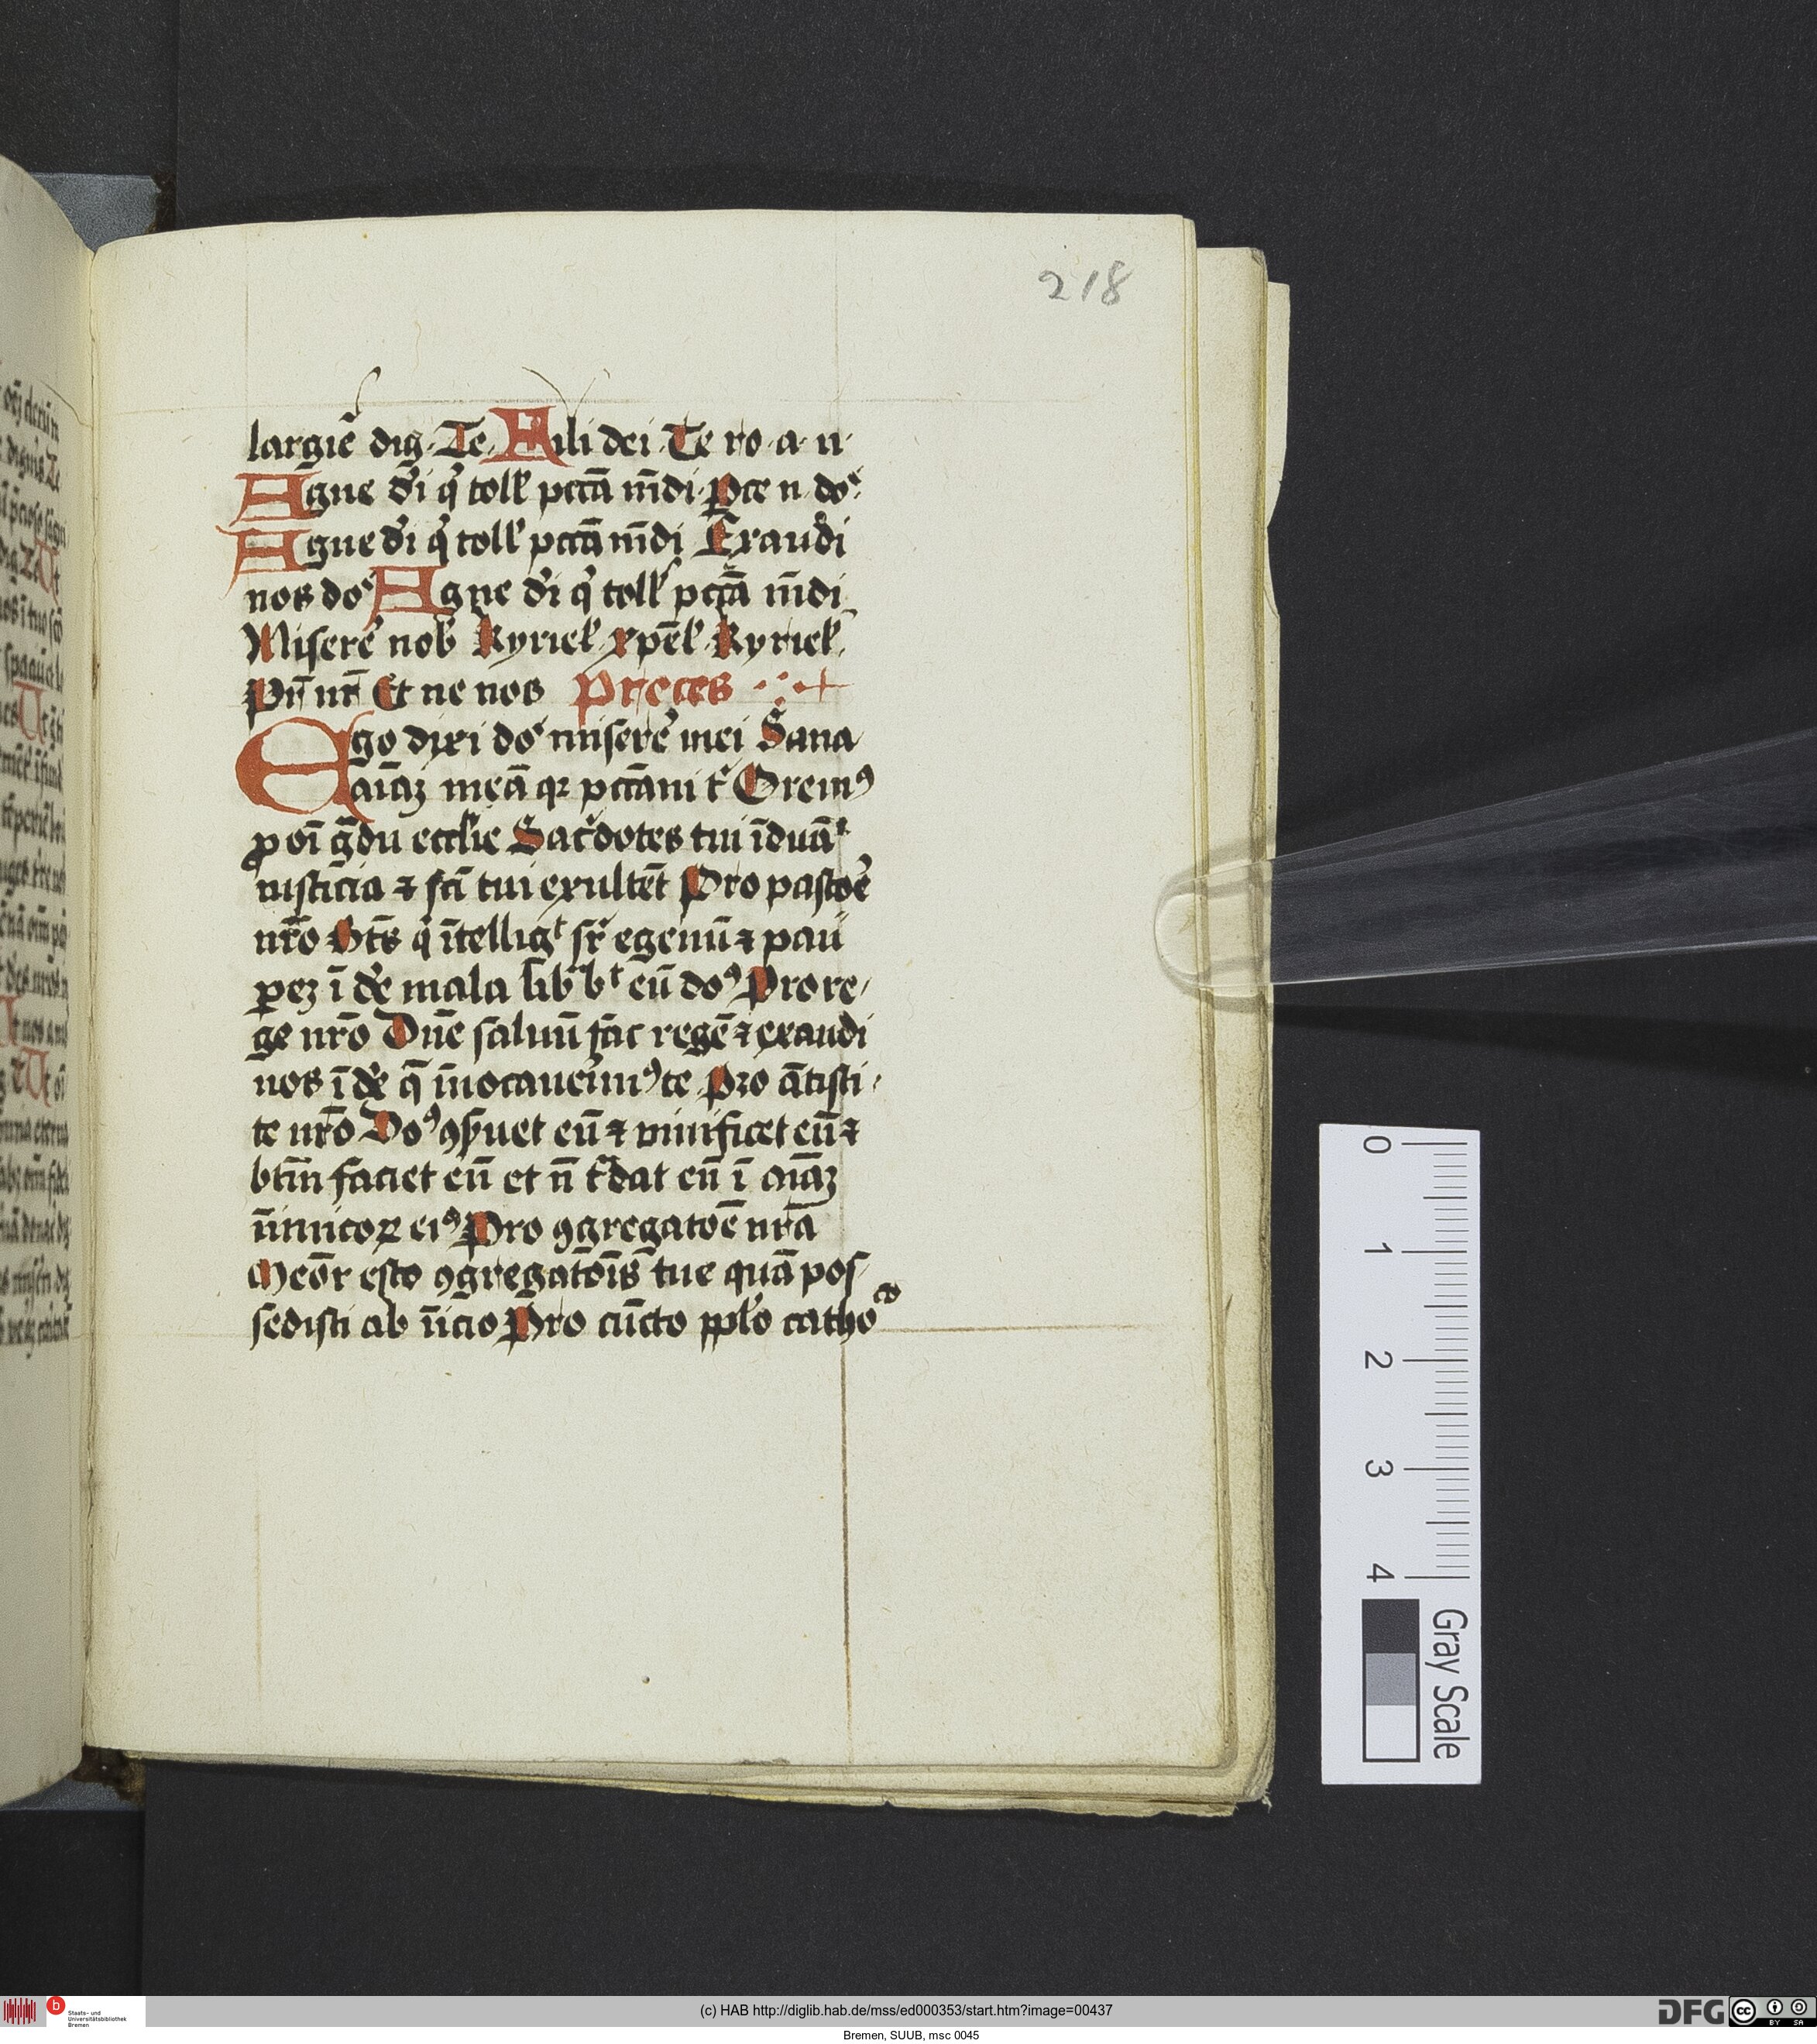 218
largiē dig. Te. Fili dei. Te ro. a. n.
Agne dei q toll pctā mūdi. Pce n. do
Agne dei q toll pctā mūdi Exaudi
nos do Agne dei q toll pctā mūdi
Miserē nob Kyriel. xpēl. Kyriel.
Pr̄ nr̄ Et ne nos Preces
Ego dixi do miserē mei Sana
aīaʒ meā qꝛ pctāui t Oremꝰ
ꝓ oī gdu ecclie Sacdotes tui īduāt
iusticia ⁊ sci tui exultēt Pro pastoē
nro Bts q ītelligt sr egenū ⁊ pau
peʒ ī die mala libbt eū doꝰ Pro re
ge nro Dne saluū fac regē ⁊ exaudi
nos ī die q īuocauerimꝰ te Pro ātisti
te nro Doꝰ ꝯseruet eū ⁊ viuificet eū ⁊
btm faciet eū et nō tdat eū ī aīaʒ
inimicoꝝ eiꝰ Pro ꝯgregatoē nra
Meor esto ꝯgregatōis tue quā pos
sedisti ab īicio Pro cūcto pplo catho
0
1
2
3
4
Gray Scale
(c) HAB http://diglib.hab.de/mss/ed000353/start.htm?image=00437
Bremen, SUUB, msc 0045
Staats- und
Universitätsbibliothek
Bremen
DFG
BY SA